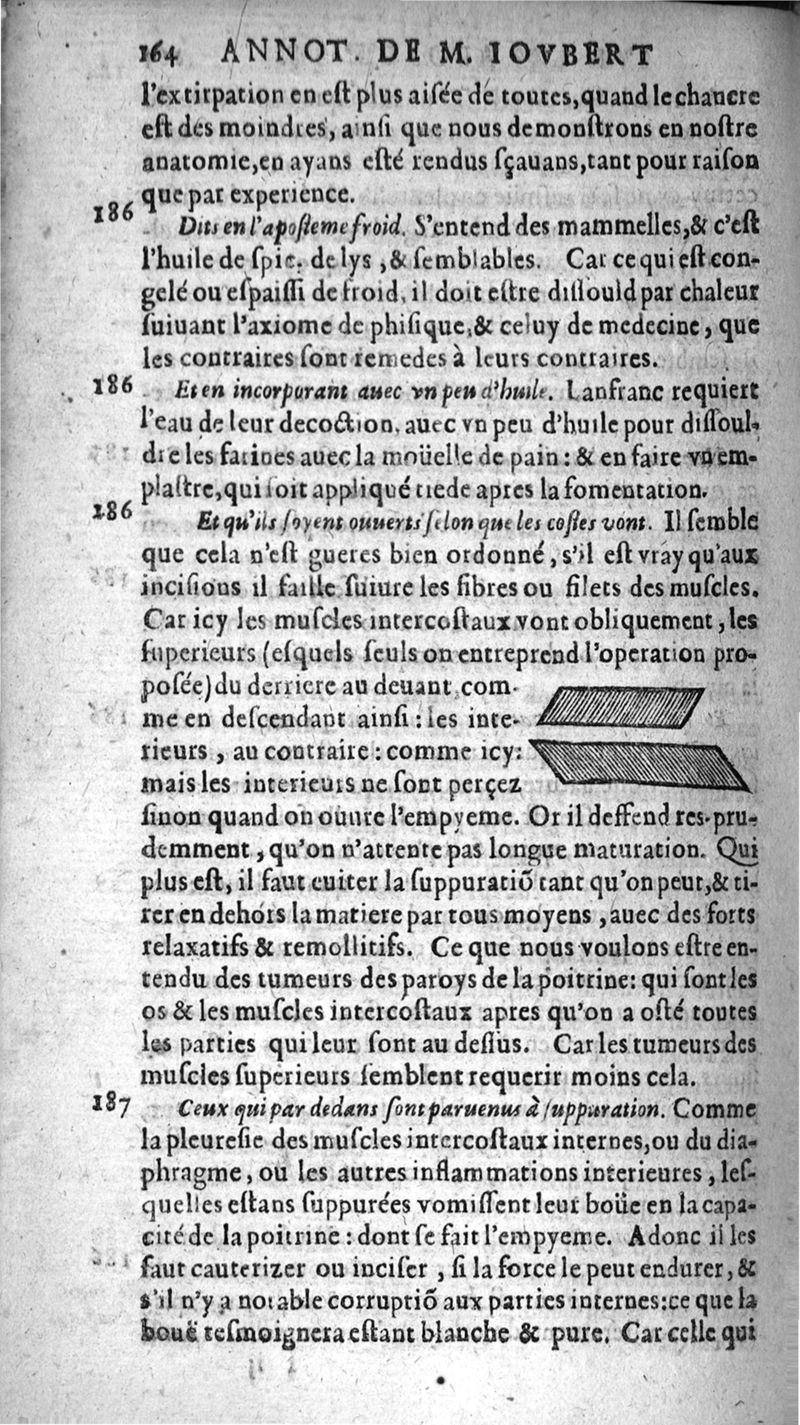 164 ANNOT. DE M. IOVBERT
l'extirpation en eſt plus aiſée de toutes, quand le chancre
eſt des moindres, ainſi que nous demonſtrons en noſtre
anatomie, en ayans eſté rendus ſçauans, tant pour raiſon
que par experience.
186 Dits en l'apoſteme froid. S'entend des mammelles, & c'eſt
l'huile de ſpic, de lys, & ſemblables. Car ce qui eſt con-
gelé ou eſpaiſſi de froid, il doit eſtre diſſould par chaleur
ſuiuant l'axiome de phiſique, & celuy de medecine, que
les contraires ſont remedes à leurs contraires.
186 Et en incorporant auec vn peu d'huile. Lanfranc requiert
l'eau de leur decoction, auec vn peu d'huile pour diſſoul-
dre les farines auec la moüelle de pain : & en faire vn em-
plaſtre, qui ſoit appliqué tiede apres la fomentation.
186 Et qu'ils ſoyent ouuerts ſelon que les coſtes vont. Il ſemble
que cela n'eſt gueres bien ordonné, s'il eſt vray qu'aux
inciſions il faille ſuiure les fibres ou filets des muſcles.
Car icy les muſcles intercoſtaux vont obliquement, les
ſuperieurs (eſquels ſeuls on entreprend l'operation pro-
poſée) du derriere au deuant com-
me en deſcendant ainſi : les inte-
rieurs, au contraire : comme icy:
mais les interieurs ne ſont perçez
ſinon quand on ouure l'empyeme. Or il deffend res-pru-
demment, qu'on n'attente pas longue maturation. Qui
plus eſt, il faut euiter la ſuppuratiõ tant qu'on peut, & ti-
rer en dehors la matiere par tous moyens, auec des forts
relaxatifs & remollitifs. Ce que nous voulons eſtre en-
tendu des tumeurs des paroys de la poitrine: qui ſont les
os & les muſcles intercoſtaux apres qu'on a oſté toutes
les parties qui leur ſont au deſſus. Car les tumeurs des
muſcles ſuperieurs ſemblent requerir moins cela.
187 Ceux qui par dedans ſont paruenus à ſuppuration. Comme
la pleureſie des muſcles intercoſtaux internes, ou du dia-
phragme, ou les autres inflammations interieures, leſ-
quelles eſtans ſuppurées vomiſſent leur boüe en la capa-
cité de la poitrine : dont ſe fait l'empyeme. Adonc il les
faut cauterizer ou inciſer, ſi la force le peut endurer, &
s'il n'y a notable corruptiõ aux parties internes: ce que la
bouë teſmoignera eſtant blanche & pure. Car celle qui